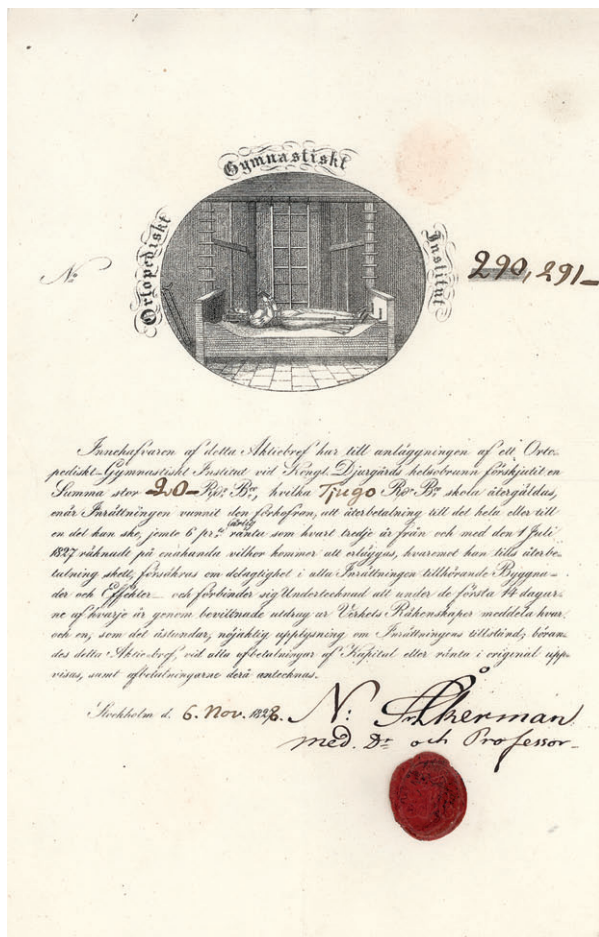 Ortopediskt Gymnastiskt Institut
No 290, 291-
Innehafvaren af detta Aktiebref har till anläggningen af ett Orto-
pediskt-Gymnastiskt Institut vid Kongl. Djurgårds helsobrunn förskjutit en
Summa stor 20- Rdr Bco, hvilka Tjugo Rdr Bco skola återgäldas,
enär Inrättningen vunnit den förkofran, att återbetalning till det hela eller till
en del kan ske, jemte 6 prCt årlig ränta som hvart tredje år från och med den 1 Juli
1827 räknadt på enahanda vilkor kommer att erläggas, hvaremot han tills återbe-
talning skett, försäkras om delagtighet i alla Inrättningen tillhörande Byggna-
der och Effekter - och förbinder sig Undertecknad att under de första 14 dagar-
ne af hvarje år genom bevittnade utdrag ur Verkets Räkenskaper meddela hvar
och en, som det åstundar, nöjaktig upplysning om Inrättningens tillstånd; böran-
des detta Aktiebref, vid alla afbetalningar af Kapital eller ränta i original upp-
visas, samt afbetalningarne derå antecknas.
Stockholm d. 6. Nov. 1828. N: Åkerman
med. Dr och Professor-